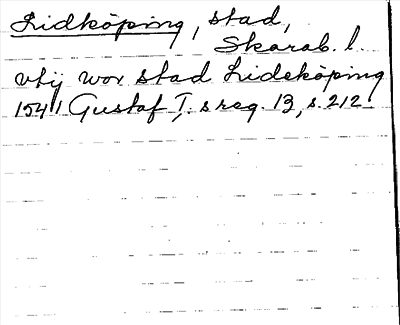 Lidköping, stad,
Skarab. l.
vtij wor stad Lidekòping
1541 Gustaf I:s reg. 13, s. 212